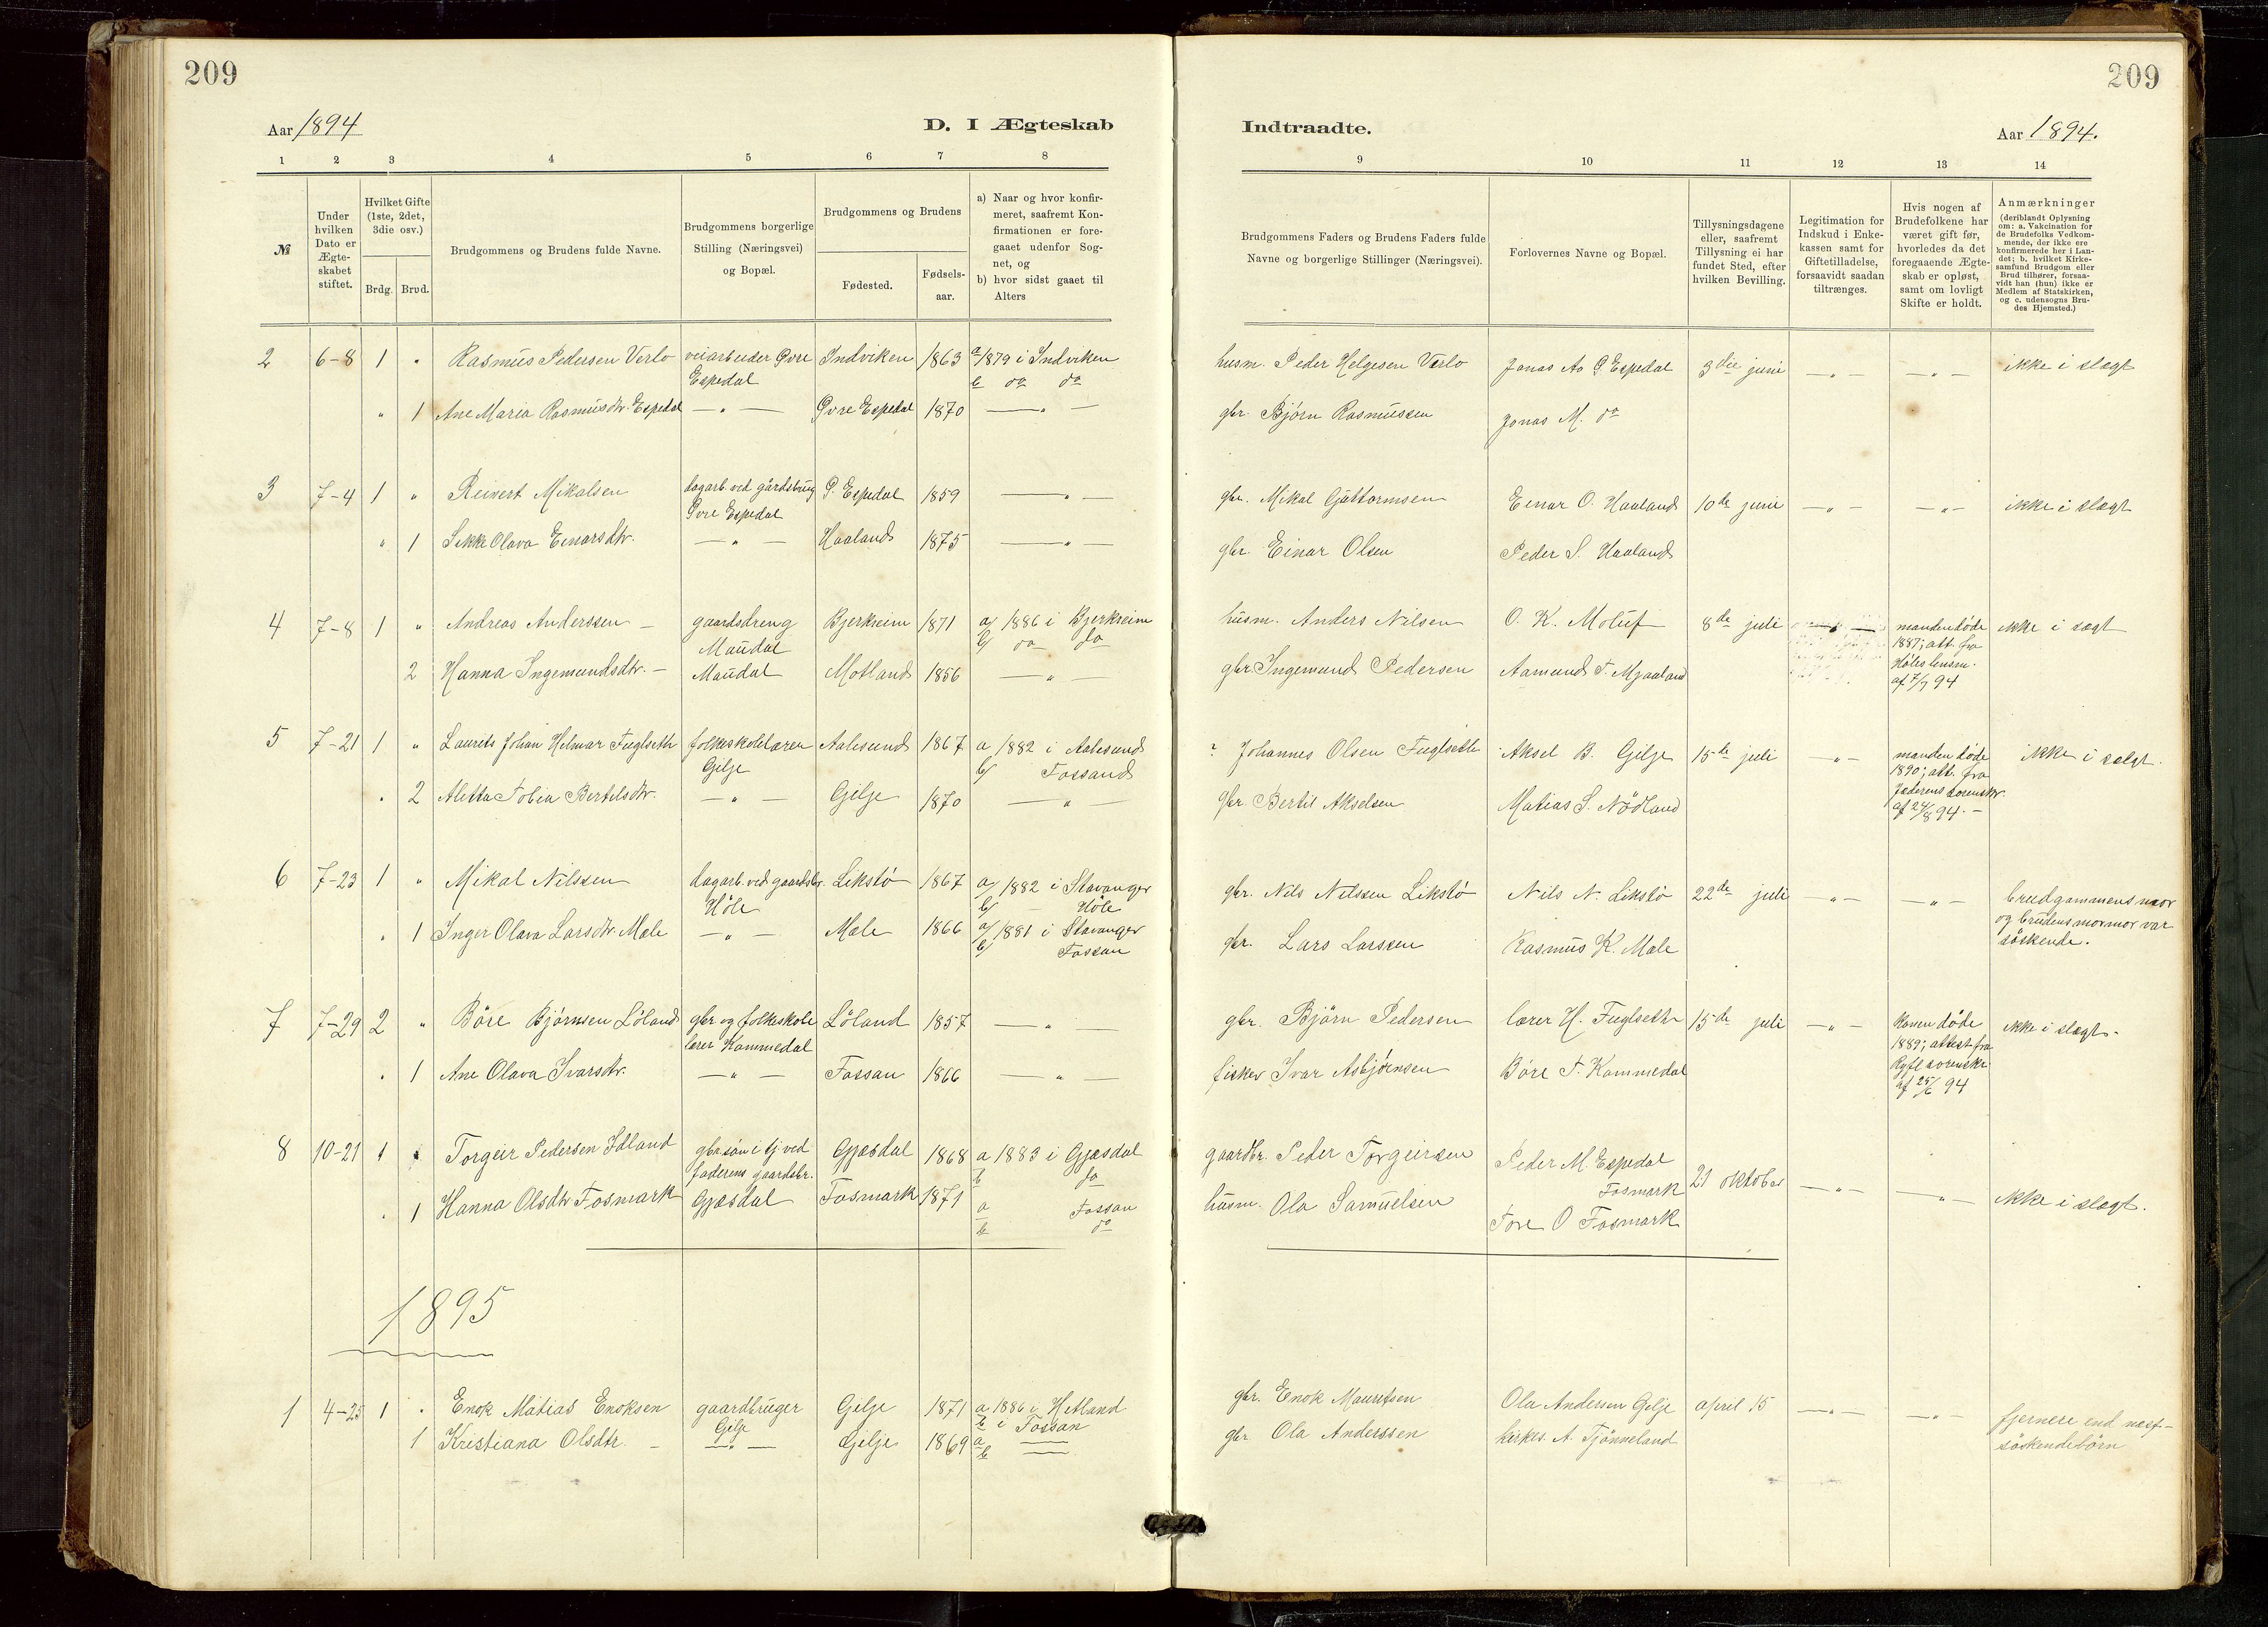 209
Aar 1894
D. I Ægteskab
1 2 3 4 5 6 7 8
№
Under hvilken Dato er Ægteskabet stiftet.
Hvilket Gifte (1ste, 2det, 3die osv.)
Brdg. Brud.
Brudgommens og Brudens fulde Navne.
Brudgommens borgerlige Stilling (Næringsvei) og Bopæl.
Brudgommens og Brudens
Fødested. Fødselsaar.
a) Naar og hvor konfirmeret, saafremt Konfirmationen er foregaaet udenfor Sognet, og
b) hvor sidst gaaet til Alters
2 6-8 1 " Rasmus Pedersen Verlo veiarbeider Øvre Indviken 1863 a/1879 i Indviken
Espedal b do do
" 1 Ane Maria Rasmusdtr. Espedal — " — Øvre Espedal 1870 — " —
3 7-4 1 " Reinert Mikalsen dagarb. ved gårdsbrug Ø. Espedal 1859 — " —
Øvre Espedal
" 1 Sikke Olava Einarsdtr. — " — Haaland 1875 — " —
4 7-8 1 " Andreas Anderssen — gaardsdreng Bjerkreim 1871 a/ 1886 i Bjerkreim
Maudal b/ do do
2 Hanna Ingemundsdtr. — Maudal Motland 1856 — " —
5 7-21 1 " Laurits Johan Helmar Fuglseth folkeskolelærer Aalesund 1867 a 1882 i Aalesund
Gilje b/ Fossand
" 2 Aletta Tobia Bertilsdtr. — " — Gilje 1870 — " —
6 7-23 1 " Mikal Nilssen dagarb. ved gaardsbr. Likslø 1867 a/ 1882 i Stavanger
Høle b/ — Høle
" 1 Inger Olava Larsdtr. Mæle — " — Mæle 1866 a/ 1881 i Stavanger
b/ Fossan
7 7-29 2 " Böre Bjørnsen Löland gbr og folkeskole Löland 1857 — " —
lærer Kommedal
" 1 Ane Olava Ivarsdtr. — " — Fossan 1866 — " —
8 10-21 1 " Torgeir Pedersen Idland gbr.søn i tj ved Gjæsdal 1868 a 1883 i Gjæsdal
faderens gaardsbr. b do
" 1 Hanna Olsdtr Fosmark Gjæsdal Fosmark 1871 a Fossan
b do
1895
1 4-25 1 " Enok Matias Enoksen gaardbruger Gilje 1871 a 1886 i Hetland
Gilje b i Fossan
1 Kristiana Olsdtr. — — " — Gilje 1869 a —
b —
209
Indtraadte.
Aar 1894.
9 10 11 12 13 14
Brudgommens Faders og Brudens Faders fulde Navne og borgerlige Stillinger (Næringsvei).
Forlovernes Navne og Bopæl.
Tillysningsdagene eller, saafremt Tillysning ei har fundet Sted, efter hvilken Bevilling.
Legitimation for Indskud i Enkekassen samt for Giftetilladelse, forsaavidt saadan tiltrænges.
Hvis nogen af Brudefolkene har været gift før, hvorledes da det foregaaende Ægteskab er opløst, samt om lovligt Skifte er holdt.
Anmærkninger (deriblandt Oplysning om: a. Vakcination for de Brudefolks Vedkommende, der ikke ere konfirmerede her i Landet; b. hvilket Kirkesamfund Brudgom eller Brud tilhører, forsaavidt han (hun) ikke er Medlem af Statskirken, og c. udensogns Brudes Hjemsted.)
husm. Peder Helgesen Verlo Jonas As G Espedal 3die juni — " — — " — ikke i slægt
gbr. Bjørn Rasmussen Jonas M. do
gbr. Mikal Guttormsen Einar O. Haaland 10de juni — " — — " — ikke i slægt
gbr. Einar Olsen Peder S. Haaland
husm. Anders Nilsen O. K. Moluf 8de juli — " — manden døde ikke i sægt
1887; att. fra
Høles lensm.
af 7/7 94
gbr. Ingemund Pedersen Aamund T. Mjaaland
? Johannes Olsen Fuglseth Aksel B. Gilje 15de juli — " — manden døde ikke i sælgt.
1890; att. fra
Jæderens sorenskr.
af 24/8 94. —
gbr. Bertil Akselsen Matias S. Nödland
gbr. Nils Nilssen Likslø Nils N. Likslø 22de juli — " — — " — brudgommens mor
og brudens mormor var
söskende.
gbr. Lars Larssen Rasmus K. Mæle
gbr. Björn Pedersen lærer H. Fuglseth 15de juli — " — Konen døde ikke i slægt.
1889; attest fra
Ryfl sorenskr.
af 25/6 94
fisker Ivar Asbjørnsen Böre T. Kommedal
gaardbr. Peder Torgeirsen Peder M. Espedal 21 oktober — " — — " — ikke i slægt.
Fosmark
husm. Ola Samuelsen Tore O Fosmark
gbr. Enok Mauritsen Ola Andersen Gilje april 15 — " — — " — fjernere end næst-
söskendebörn
gbr Ola Anderssen kirkes. A. Tjönneland